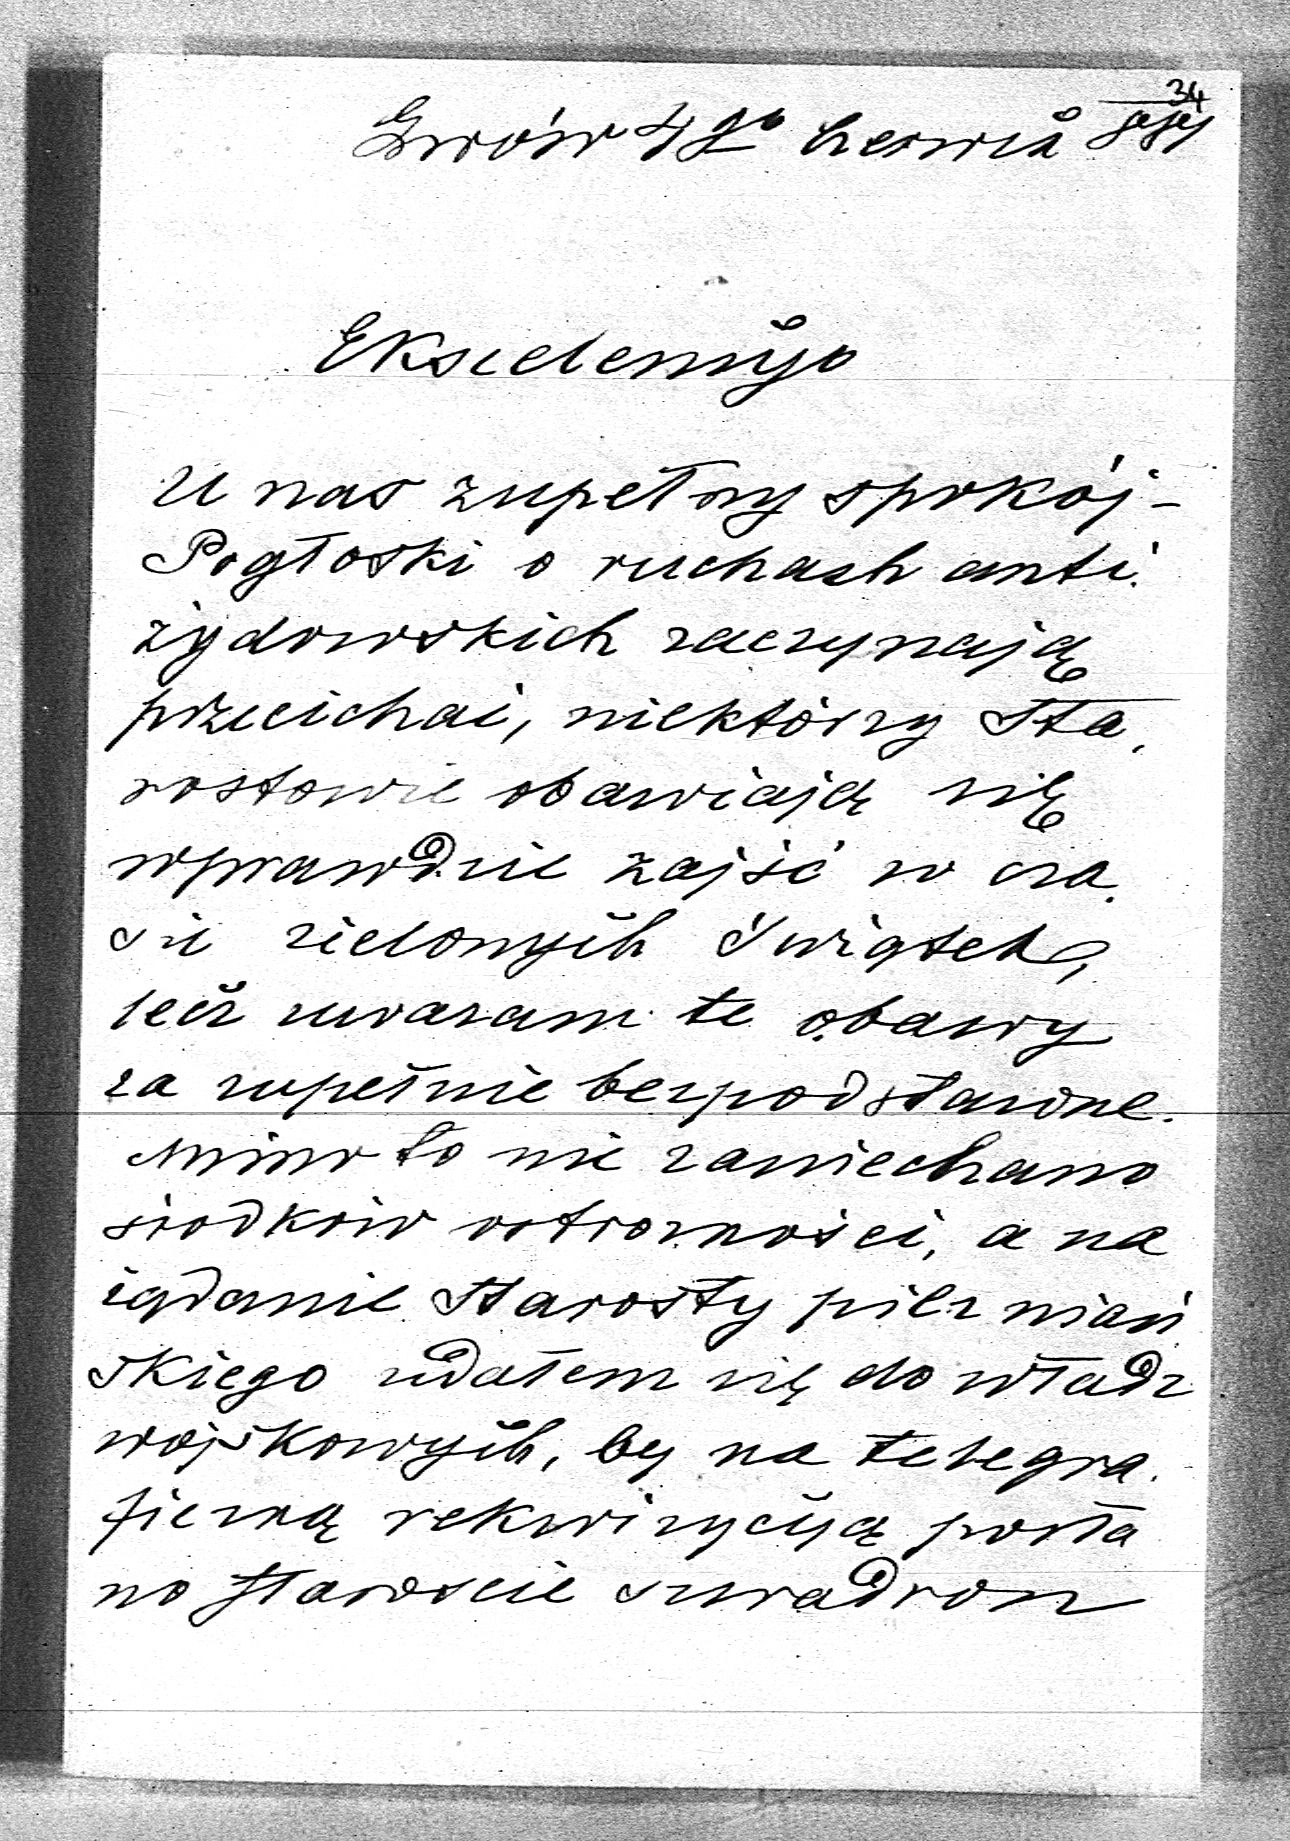 34
Lwów 4go czerwca
Ekscelencyjo
U nas zupełny spokój –
Pogłoski o ruchach anti
żydowskich zaczynają
przycichać, niektórzy Sta
rostowie obawiają się
wprawdzie zajść w cza
sie zielonych Świątek,
lecz uważam te obawy
za zupełnie bezpodstawne.
Mimo to nie zaniechano
środków ostrożności, a na
żądanie Starosty pilznień
skiego udałem się do władz
wojskowych, by na telegra
ficzną rekwizycyją posła
no staroscie szwadron